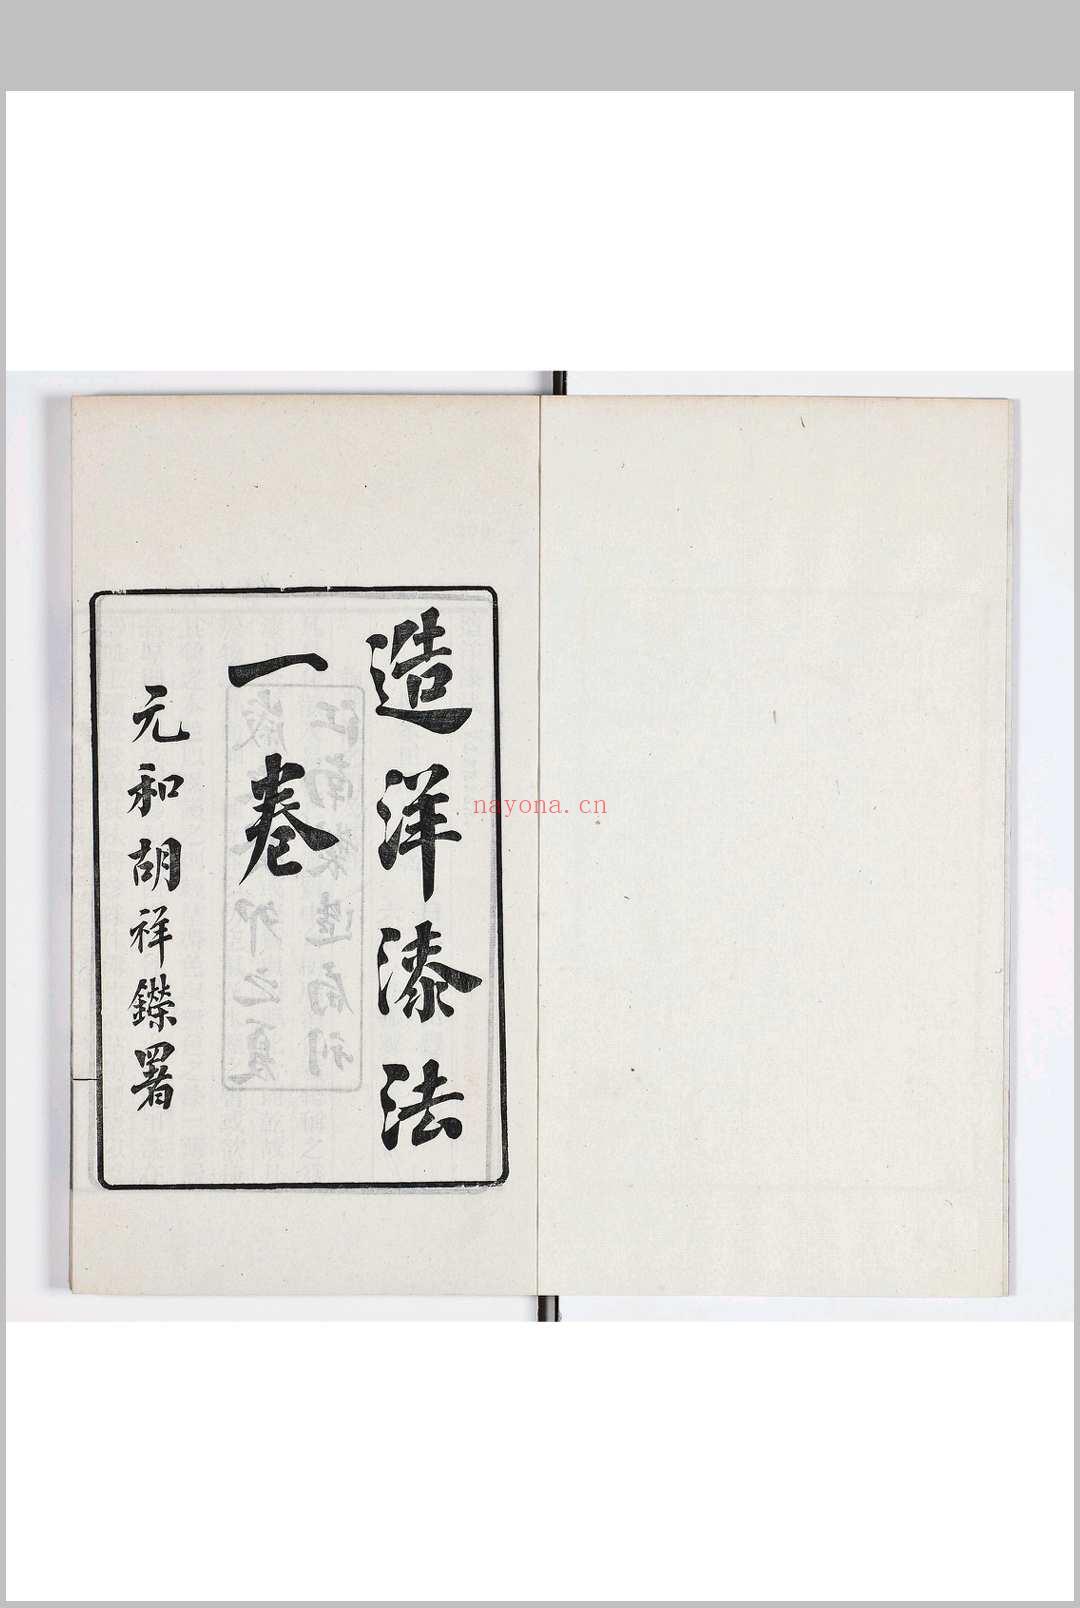 造洋漆法
一卷
元和胡祥鑅署
nayona.cn